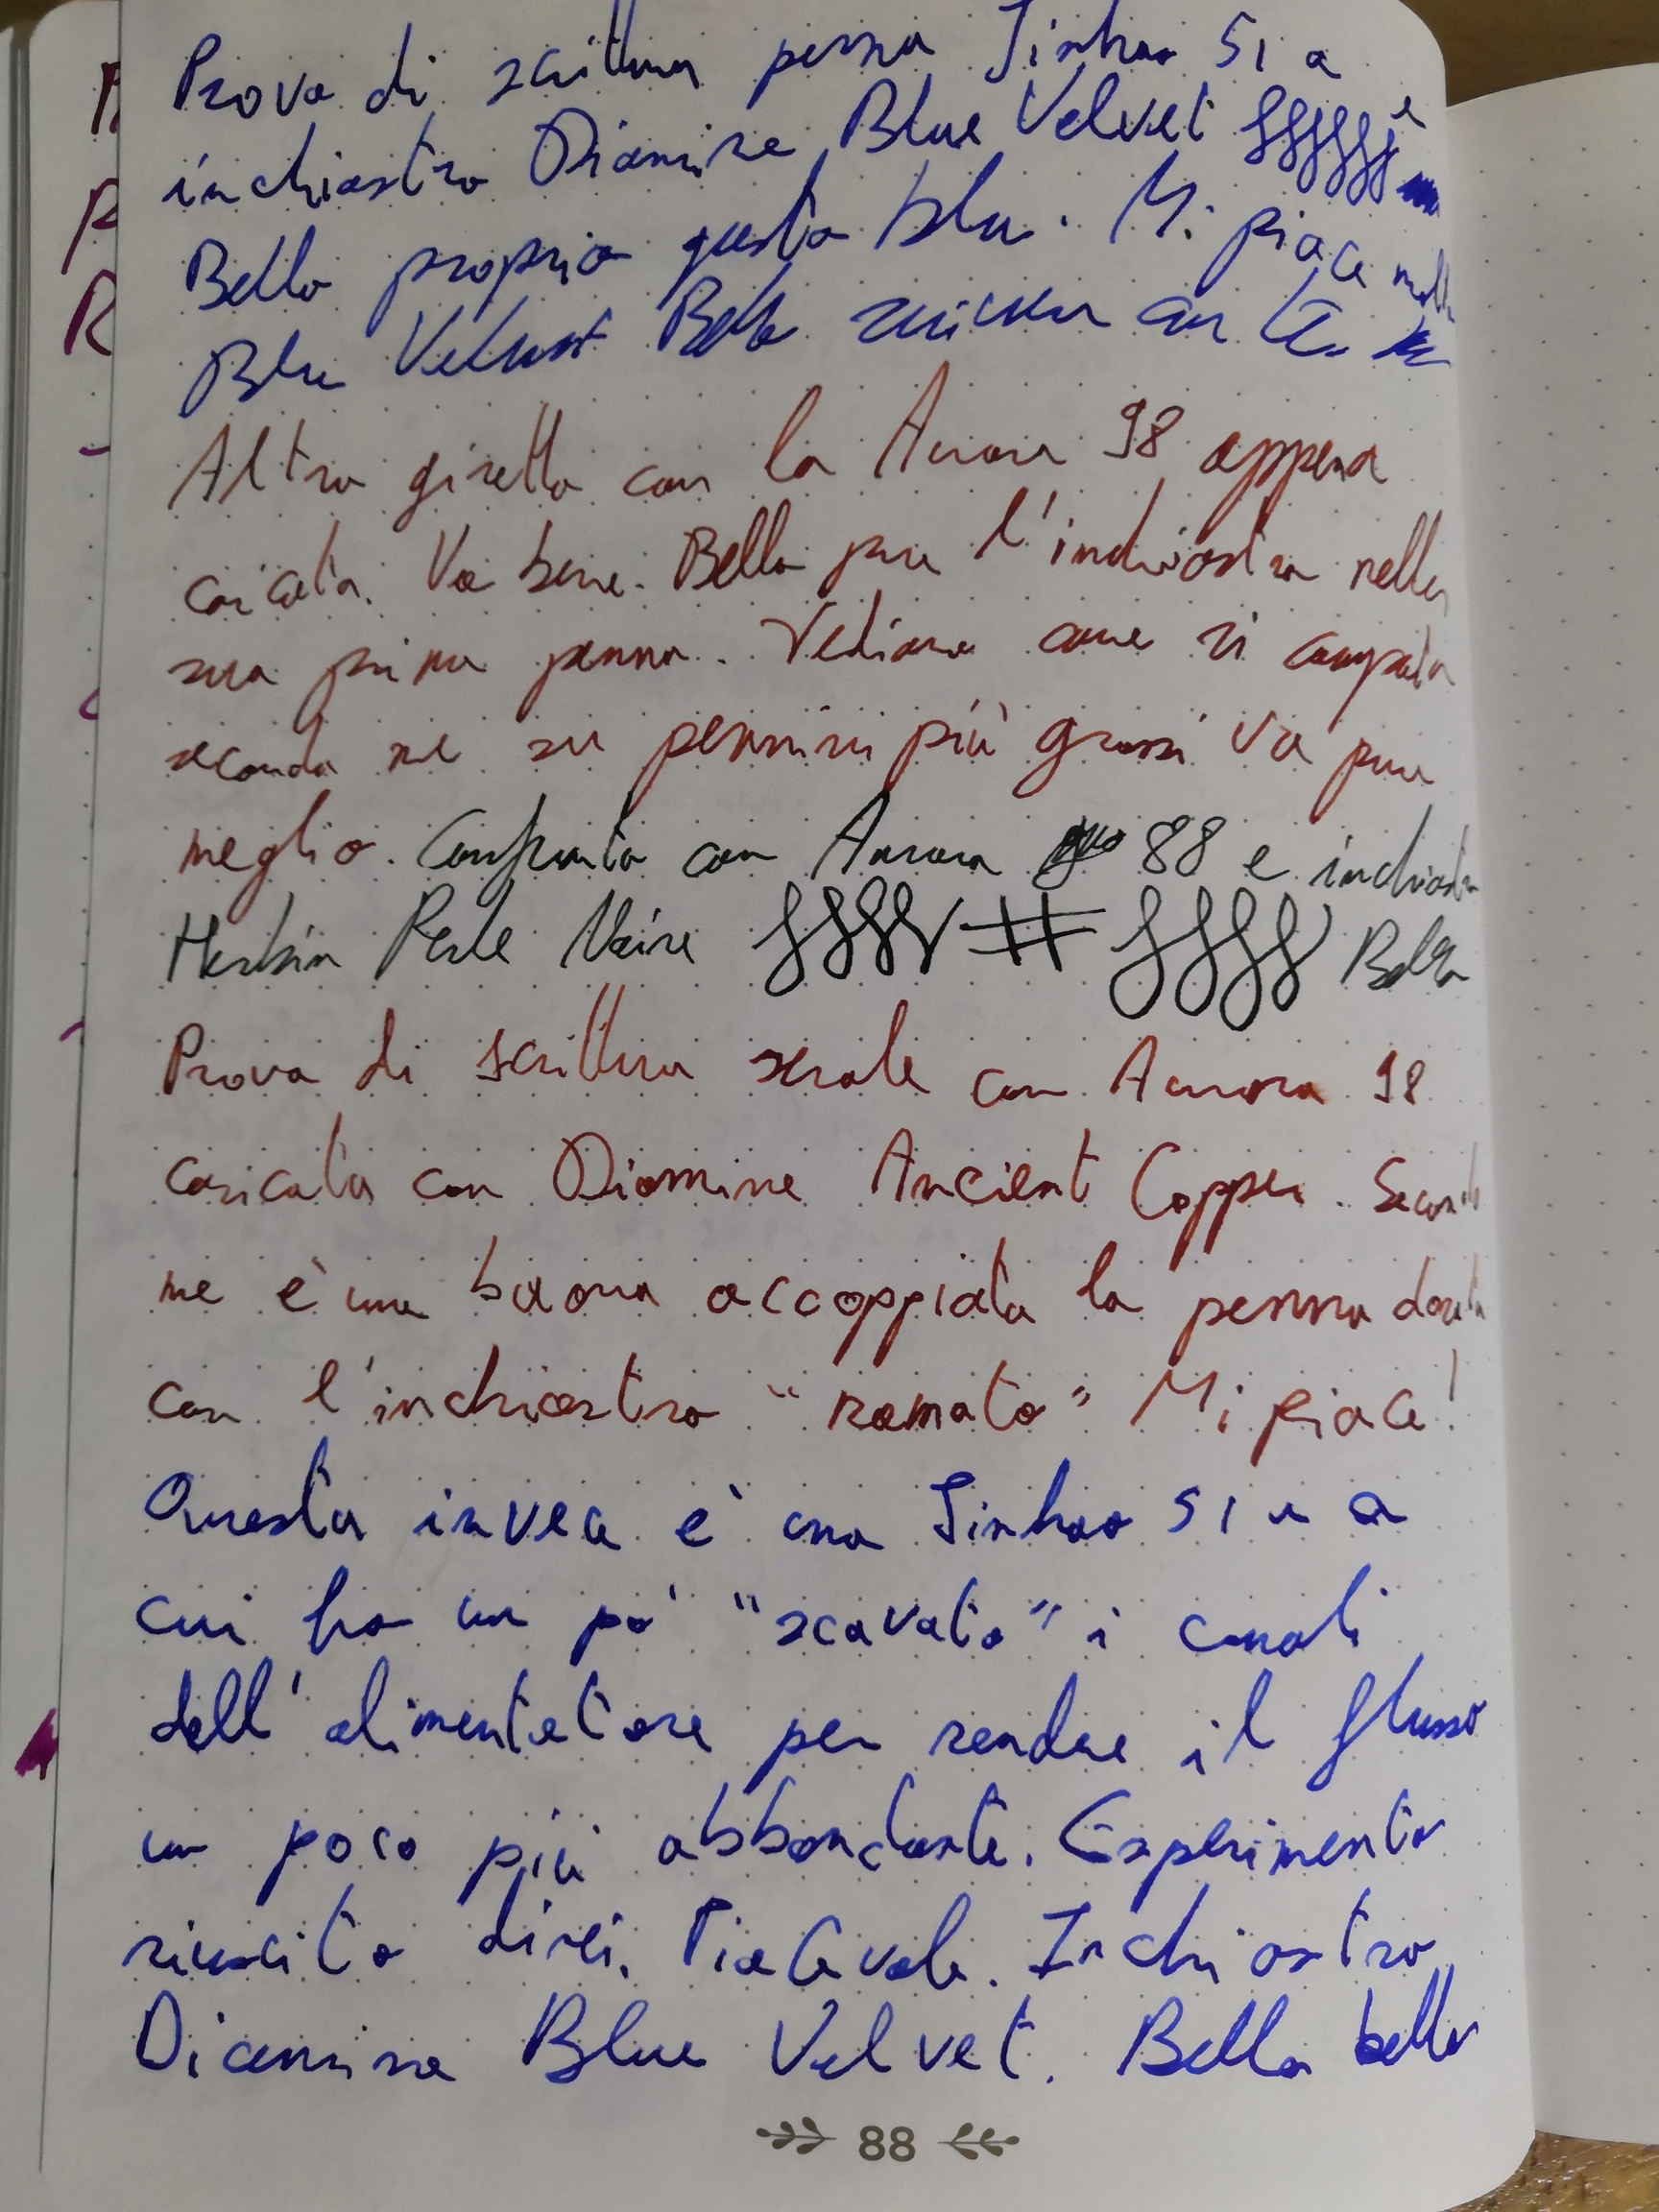 Prova di scrittura penna Jinhao 51 a
inchiostro Diamine Blue Velvet
Bello proprio questo blu. Mi piace molto
Blue Velvet Bello scrivere con te
Altro giretto con la Aurora 98 appena
caricata. Va bene. Bello pure l'inchiostro nella
sua prima penna. Vediamo come si comporta
secondo me su pennini più grossi va pure
meglio. Confronto con Aurora 88 e inchiostro
Herbin Perle Noire # Bella
Prova di scrittura serale con Aurora 98
caricata con Diamine Ancient Copper. Secondo
me è una buona accoppiata la penna dorata
con l'inchiostro "ramato" Mi piace!
Questa invece è una Jinhao 51 a
cui ho un po' "scavato" i canali
dell'alimentatore per rendere il flusso
un poco più abbondante. Esperimento
riuscito direi. Piacevole. Inchiostro
Diamine Blue Velvet. Bello bello
88